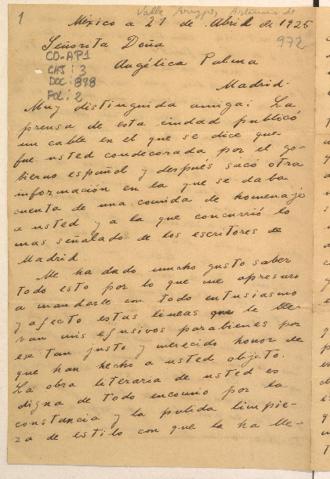 1
Valle Arizpe, Artemio de
972
México a 21 de Abril de 1925
Señorita Doña
Angélica Palma
CO-AP1
CAJ : 3
DOC : 898
FOL : 2
Madrid.
Muy distinguida amiga: La
prensa de esta ciudad publicó
un cable en el que se dice que
fue usted condecorada por el go-
bierno español y después sacó otra
información en la que se daba
cuenta de una comida de homenaje
a usted y a la que concurrió lo
mas señalado de los escritores de
Madrid
Me ha dado mucho gusto saber
todo esto por lo que me apresuro
a mandarle con todo entusiasmo
y afecto estas líneas que le lle-
van mis efusivos parabienes por
ese tan justo y merecido honor de
que han hecho a usted objeto.
La obra literaria de usted es
digna de todo encomio por la
constancia y la pulida limpie-
za de estilo con que la ha lle-